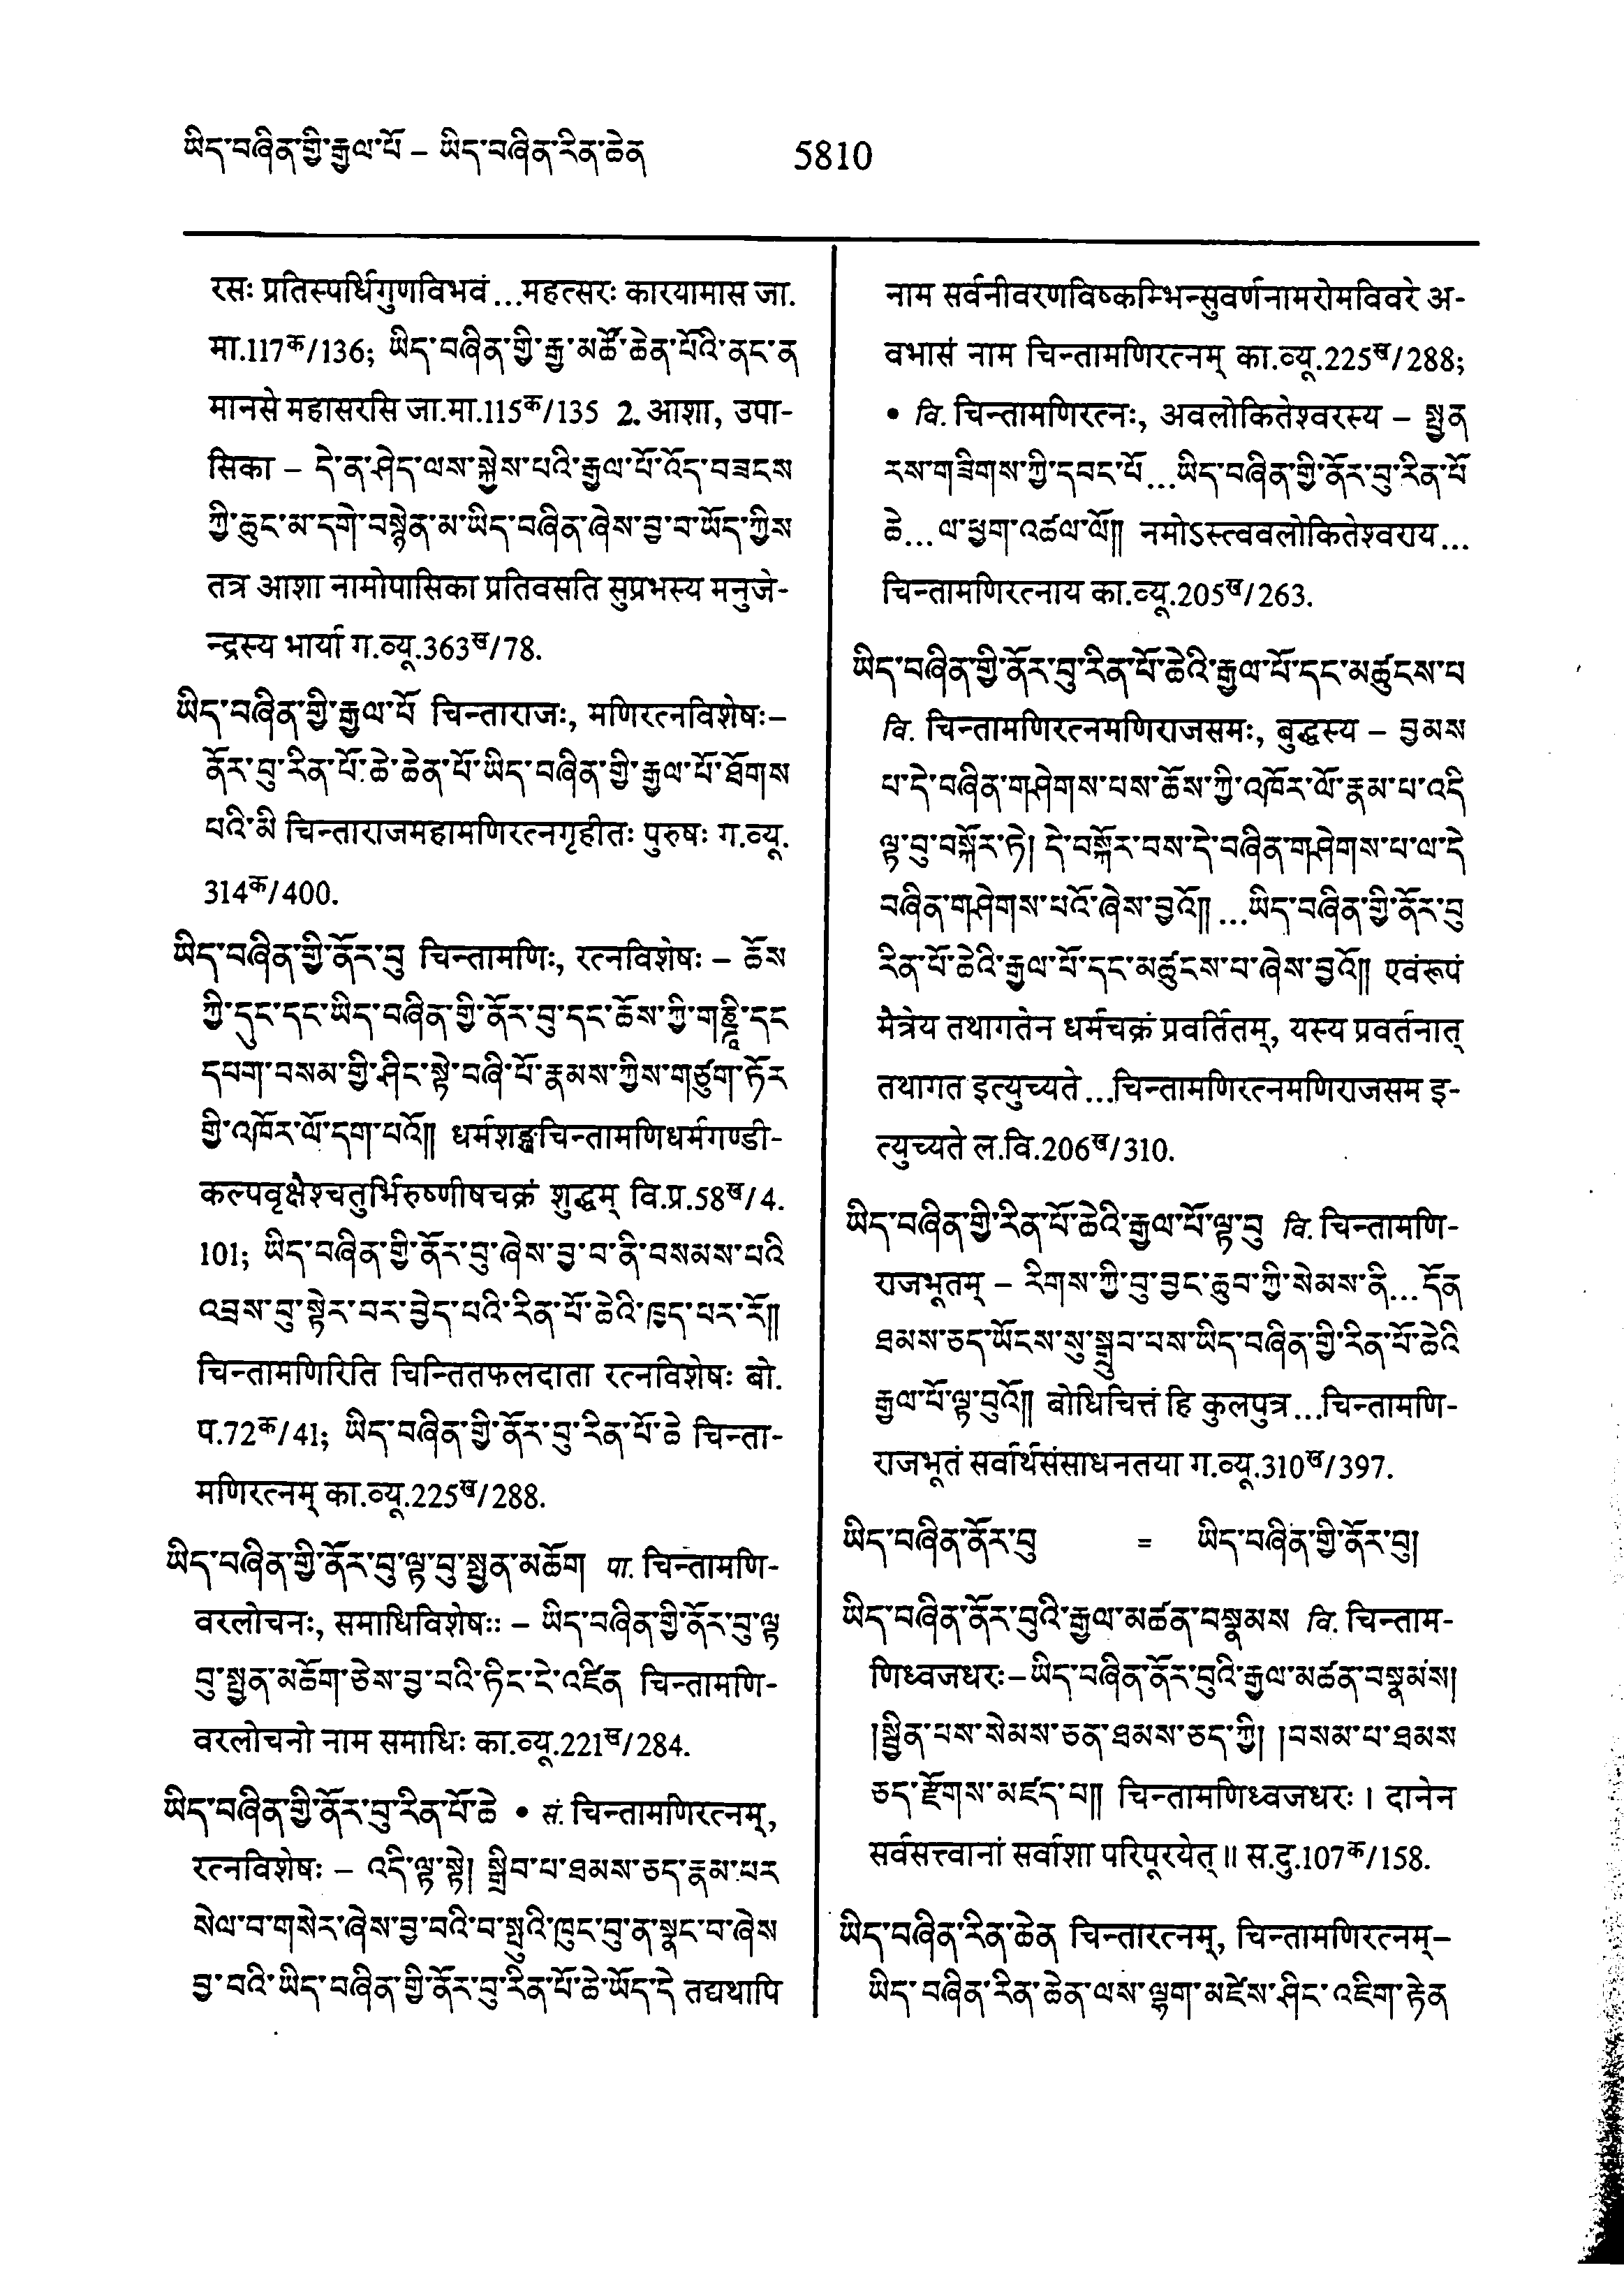 ཡིད་བཞིན་གྱི་རྒྱལ་པོ – ཡིད་བཞིན་རིན་ཆེན 5810
रसः प्रतिस्पर्धिगुणविभवं...महत्सरः कारयामास जा.
मा.117क/136; ཡིད་བཞིན་གྱི་རྒྱ་མཚོ་ཆེན་པོའི་ནང་ན
मानसे महासरसि जा.मा.115क/135 2. आशा, उपा-
सिका – དེ་ན་ཤེད་ལས་སྐྱེས་པའི་རྒྱལ་པོ་འོད་བཟངས
ཀྱི་ཆུང་མ་དགེ་བསྙེན་མ་ཡིད་བཞིན་ཞེས་བྱ་བ་ཡོད་ཀྱིས
तत्र आशा नामोपासिका प्रतिवसति सुप्रभस्य मनुजे-
न्द्रस्य भार्या ग.व्यू.363ख/78.
ཡིད་བཞིན་གྱི་རྒྱལ་པོ चिन्ताराजः, मणिरत्नविशेषः–
ནོར་བུ་རིན་པོ་ཆེ་ཆེན་པོ་ཡིད་བཞིན་གྱི་རྒྱལ་པོ་ཐོགས
པའི་མི चिन्ताराजमहामणिरत्नगृहीतः पुरुषः ग.व्यू.
314क/400.
ཡིད་བཞིན་གྱི་ནོར་བུ चिन्तामणिः, रत्नविशेषः – ཆོས
ཀྱི་དུང་དང་ཡིད་བཞིན་གྱི་ནོར་བུ་དང་ཆོས་ཀྱི་གཎྜི་དང
དཔག་བསམ་གྱི་ཤིང་སྟེ་བཞི་པོ་རྣམས་ཀྱིས་གཙུག་ཏོར
གྱི་འཁོར་ལོ་དག་པའོ།། धर्मशङ्खचिन्तामणिधर्मगण्डी-
कल्पवृक्षैश्चतुर्भिरुष्णीषचक्रं शुद्धम् वि.प्र.58ख/4.
101; ཡིད་བཞིན་གྱི་ནོར་བུ་ཞེས་བྱ་བ་ནི་བསམས་པའི
འབྲས་བུ་སྟེར་བར་བྱེད་པའི་རིན་པོ་ཆེའི་ཁྱད་པར་རོ།།
चिन्तामणिरिति चिन्तितफलदाता रत्नविशेषः बो.
प.72क/41; ཡིད་བཞིན་གྱི་ནོར་བུ་རིན་པོ་ཆེ चिन्ता-
मणिरत्नम् का.व्यू.225ख/288.
ཡིད་བཞིན་གྱི་ནོར་བུ་ལྟ་བུ་སྤྱན་མཆོག पा. चिन्तामणि-
वरलोचनः, समाधिविशेषः: – ཡིད་བཞིན་གྱི་ནོར་བུ་ལྟ
བུ་སྤྱན་མཆོག་ཅེས་བྱ་བའི་ཏིང་ངེ་འཛིན चिन्तामणि-
वरलोचनो नाम समाधिः का.व्यू.221ख/284.
ཡིད་བཞིན་གྱི་ནོར་བུ་རིན་པོ་ཆེ • सं. चिन्तामणिरत्नम्,
रत्नविशेषः – འདི་ལྟ་སྟེ། སྒྲིབ་པ་ཐམས་ཅད་རྣམ་པར
སེལ་བ་གསེར་ཞེས་བྱ་བའི་བ་སྤུའི་ཁུང་བུ་ན་སྣང་བ་ཞེས
བྱ་བའི་ཡིད་བཞིན་གྱི་ནོར་བུ་རིན་པོ་ཆེ་ཡོད་དེ तद्यथापि
नाम सर्वनीवरणविष्कम्भिन्सुवर्णनामरोमविवरे अ-
वभासं नाम चिन्तामणिरत्नम् का.व्यू.225ख/288;
• वि. चिन्तामणिरत्नः, अवलोकितेश्वरस्य – སྤྱན
རས་གཟིགས་ཀྱི་དབང་པོ...ཡིད་བཞིན་གྱི་ནོར་བུ་རིན་པོ
ཆེ...ལ་ཕྱག་འཚལ་ལོ།། नमोऽस्त्ववलोकितेश्वराय...
चिन्तामणिरत्नाय का.व्यू.205ख/263.
ཡིད་བཞིན་གྱི་ནོར་བུ་རིན་པོ་ཆེའི་རྒྱལ་པོ་དང་མཚུངས་པ
वि. चिन्तामणिरत्नमणिराजसमः, बुद्धस्य – བྱམས
པ་དེ་བཞིན་གཤེགས་པས་ཆོས་ཀྱི་འཁོར་ལོ་རྣམ་པ་འདི
ལྟ་བུ་བསྐོར་ཏེ། དེ་བསྐོར་བས་དེ་བཞིན་གཤེགས་པ་ལ་དེ
བཞིན་གཤེགས་པའོ་ཞེས་བྱའོ།། ...ཡིད་བཞིན་གྱི་ནོར་བུ
རིན་པོ་ཆེའི་རྒྱལ་པོ་དང་མཚུངས་པ་ཞེས་བྱའོ།། एवंरूपं
मैत्रेय तथागतेन धर्मचक्रं प्रवर्तितम्, यस्य प्रवर्तनात्
तथागत इत्युच्यते...चिन्तामणिरत्नमणिराजसम इ-
त्युच्यते ल.वि.206ख/310.
ཡིད་བཞིན་གྱི་རིན་པོ་ཆེའི་རྒྱལ་པོ་ལྟ་བུ वि. चिन्तामणि-
राजभूतम् – རིགས་ཀྱི་བུ་བྱང་ཆུབ་ཀྱི་སེམས་ནི...དོན
ཐམས་ཅད་ཡོངས་སུ་སྒྲུབ་པས་ཡིད་བཞིན་གྱི་རིན་པོ་ཆེའི
རྒྱལ་པོ་ལྟ་བུའོ།། बोधिचित्तं हि कुलपुत्र...चिन्तामणि-
राजभूतं सर्वार्थसंसाधनतया ग.व्यू.310ख/397.
ཡིད་བཞིན་ནོར་བུ = ཡིད་བཞིན་གྱི་ནོར་བུ།
ཡིད་བཞིན་ནོར་བུའི་རྒྱལ་མཚན་བསྣམས वि. चिन्ताम-
णिध्वजधरः– ཡིད་བཞིན་ནོར་བུའི་རྒྱལ་མཚན་བསྣམས།
།སྦྱིན་པས་སེམས་ཅན་ཐམས་ཅད་ཀྱི། །བསམ་པ་ཐམས
ཅད་རྫོགས་མཛད་པ།། चिन्तामणिध्वजधरः । दानेन
सर्वसत्त्वानां सर्वाशा परिपूरयेत् ॥ स.दु.107क/158.
ཡིད་བཞིན་རིན་ཆེན चिन्तारत्नम्, चिन्तामणिरत्नम्–
ཡིད་བཞིན་རིན་ཆེན་ལས་ལྷག་མཛེས་ཤིང་འཇིག་རྟེན